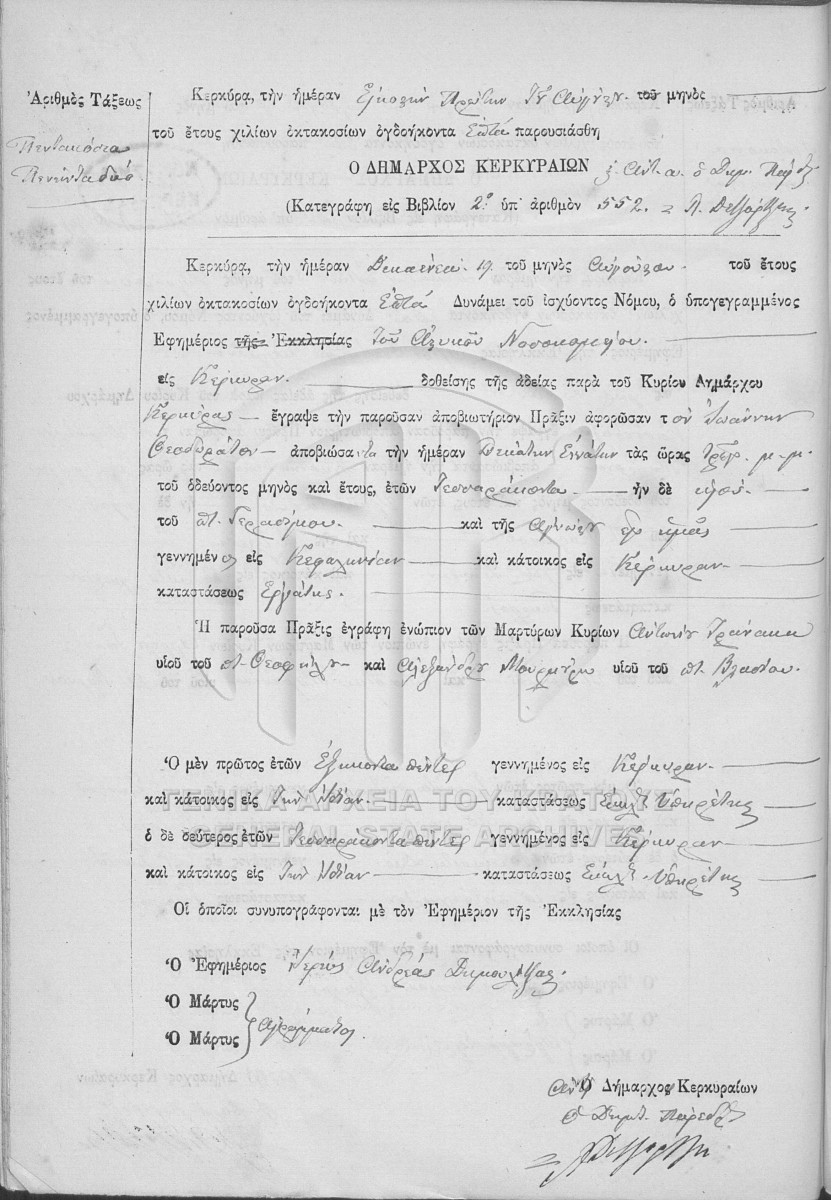 Ἀριθμὸς Τάξεως
Πεντακόσια
Πενῆντα δυό.
Κερκύρα, τὴν ἡμέραν Εἰκοστὴν Πρώτην 21 Ἀπριλίου. τοῦ μηνὸς
τοῦ ἔτους χιλίων ὀκτακοσίων ὀγδοήκοντα Ἑπτά παρουσιάσθη
Ο ΔΗΜΑΡΧΟΣ ΚΕΡΚΥΡΑΙΩΝ ὁ Δημ. Πάρεδ.
(Κατεγράφη εἰς Βιβλίον 2ον ὑπ' ἀριθμὸν 552.
Κερκύρα, τὴν ἡμέραν Δεκαεννέα 19 τοῦ μηνὸς Ἀπριλίου. τοῦ ἔτους
χιλίων ὀκτακοσίων ὀγδοήκοντα Ἑπτά Δυνάμει τοῦ ἰσχύοντος Νόμου, ὁ ὑπογεγραμμένος
Ἐφημέριος τῆς Ἐκκλησίας τοῦ Ἀστικοῦ Νοσοκομείου.
εἰς Κέρκυραν. δοθείσης τῆς ἀδείας παρὰ τοῦ Κυρίου Δημάρχου
Κερκύρας ἔγραψε τὴν παροῦσαν ἀποβιωτήριον Πρᾶξιν ἀφορῶσαν τὸν Ἰωάννην
Θεοδωράτον ἀποβιώσαντα τὴν ἡμέραν Δεκάτην Ἐννάτην τὰς ὥρας τρεῖς μ.μ.
τοῦ ὁδεύοντος μηνὸς καὶ ἔτους, ἐτῶν Τεσσαράκοντα ἦν δὲ υἱὸς
τοῦ π. Γερασίμου. καὶ τῆς
γεννημένος εἰς Κεφαλληνίαν καὶ κάτοικος εἰς Κέρκυραν
καταστάσεως Ἐργάτης.
Ἡ παροῦσα Πρᾶξις ἐγράφη ἐνώπιον τῶν Μαρτύρων Κυρίων Ἀντωνίου
υἱοῦ τοῦ π. Θεοφίλου καὶ Ἀλεξάνδρου υἱοῦ τοῦ π. Βλασίου.
Ὁ μὲν πρῶτος ἐτῶν Ἑξήκοντα πέντε γεννημένος εἰς Κέρκυραν
καὶ κάτοικος εἰς Τὴν ἰδίαν καταστάσεως Ἐκκλ. Ὑπηρέτης
ὁ δὲ δεύτερος ἐτῶν Τεσσαράκοντα πέντε γεννημένος εἰς Κέρκυραν
καὶ κάτοικος εἰς Τὴν ἰδίαν καταστάσεως Ἐκκλ. Ὑπηρέτης
Οἱ ὁποῖοι συνυπογράφονται μὲ τὸν Ἐφημέριον τῆς Ἐκκλησίας
Ὁ Ἐφημέριος Ἱερεὺς Ἀνδρέας
Ὁ Μάρτυς
Ὁ Μάρτυς Ἀγράμματοι.
Ὁ Δήμαρχος Κερκυραίων
ὁ Δημ. Πάρεδ.
ΓΕΝΙΚΑ ΑΡΧΕΙΑ ΤΟΥ ΚΡΑΤΟΥΣ
GENERAL STATE ARCHIVES